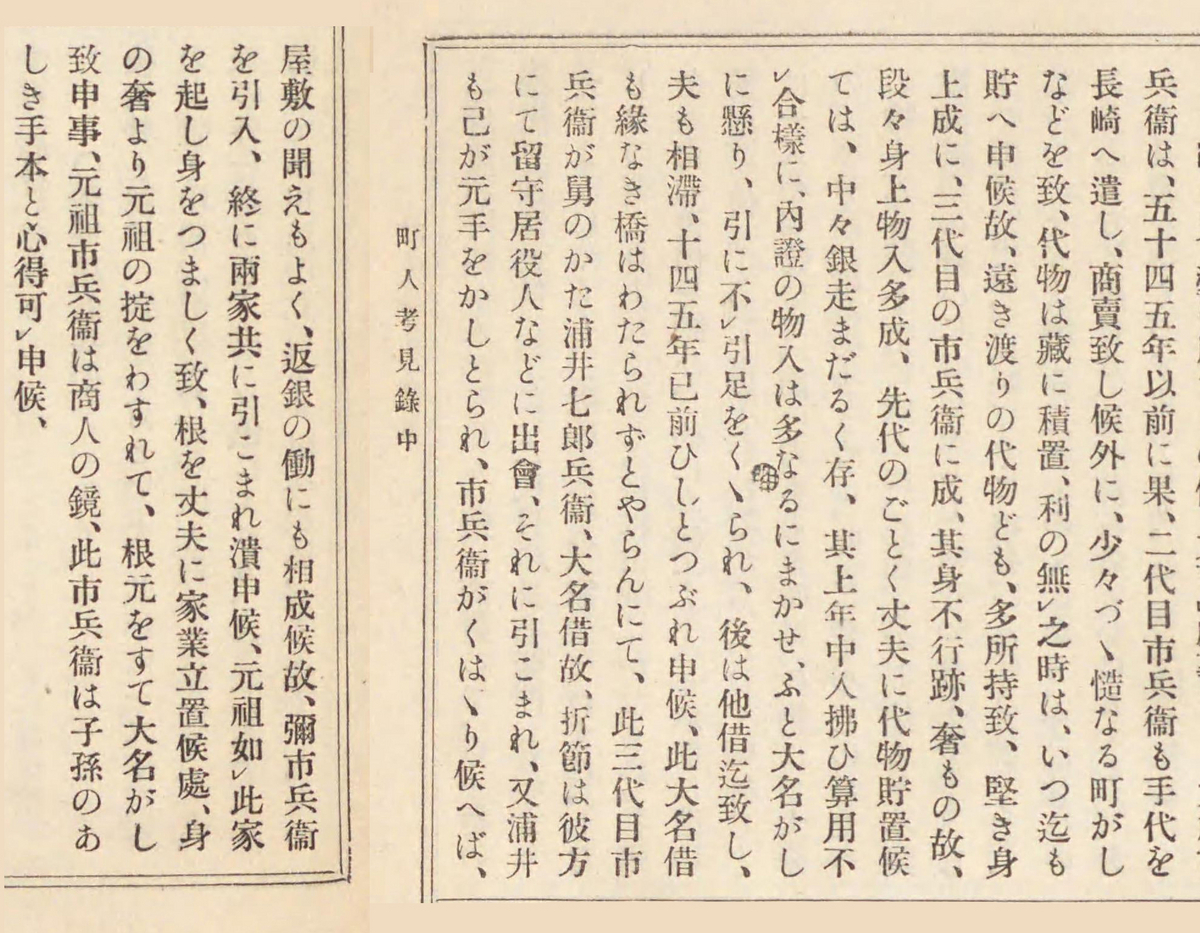 兵衞は、五十四五年以前に果、二代目市兵衞も手代を
長崎へ遣し、商賣致し候外に、少々づゝ慥なる町がし
などを致、代物は藏に積置、利の無レ之時は、いつ迄も
貯へ申候故、遠き渡りの代物ども、多所持致、堅き身
上成に、三代目の市兵衞に成、其身不行跡、奢もの故、
段々身上物入多成、先代のごとく丈夫に代物貯置候
ては、中々銀走まだるく存、其上年中入拂ひ算用不
レ合樣に、內證の物入は多なるにまかせ、ふと大名がし
に懸り、引に不レ引足をくゝられ、後は他借迄致し、
夫も相滯、十四五年已前ひしとつぶれ申候、此大名借
も緣なき橋はわたられずとやらんにて、此三代目市
兵衞が舅のかた浦井七郎兵衞、大名借故、折節は彼方
にて留守居役人などに出會、それに引こまれ、又浦井
も己が元手をかしとられ、市兵衞がくはゝり候へば、
町人考見錄中
屋敷の聞えもよく、返銀の働にも相成候故、彌市兵衞
を引入、終に兩家共に引こまれ潰申候、元祖如レ此家
を起し身をつましく致、根を丈夫に家業立置候處、身
の奢より元祖の掟をわすれて、根元をすて大名がし
致申事、元祖市兵衞は商人の鏡、此市兵衞は子孫のあ
しき手本と心得可レ申候、